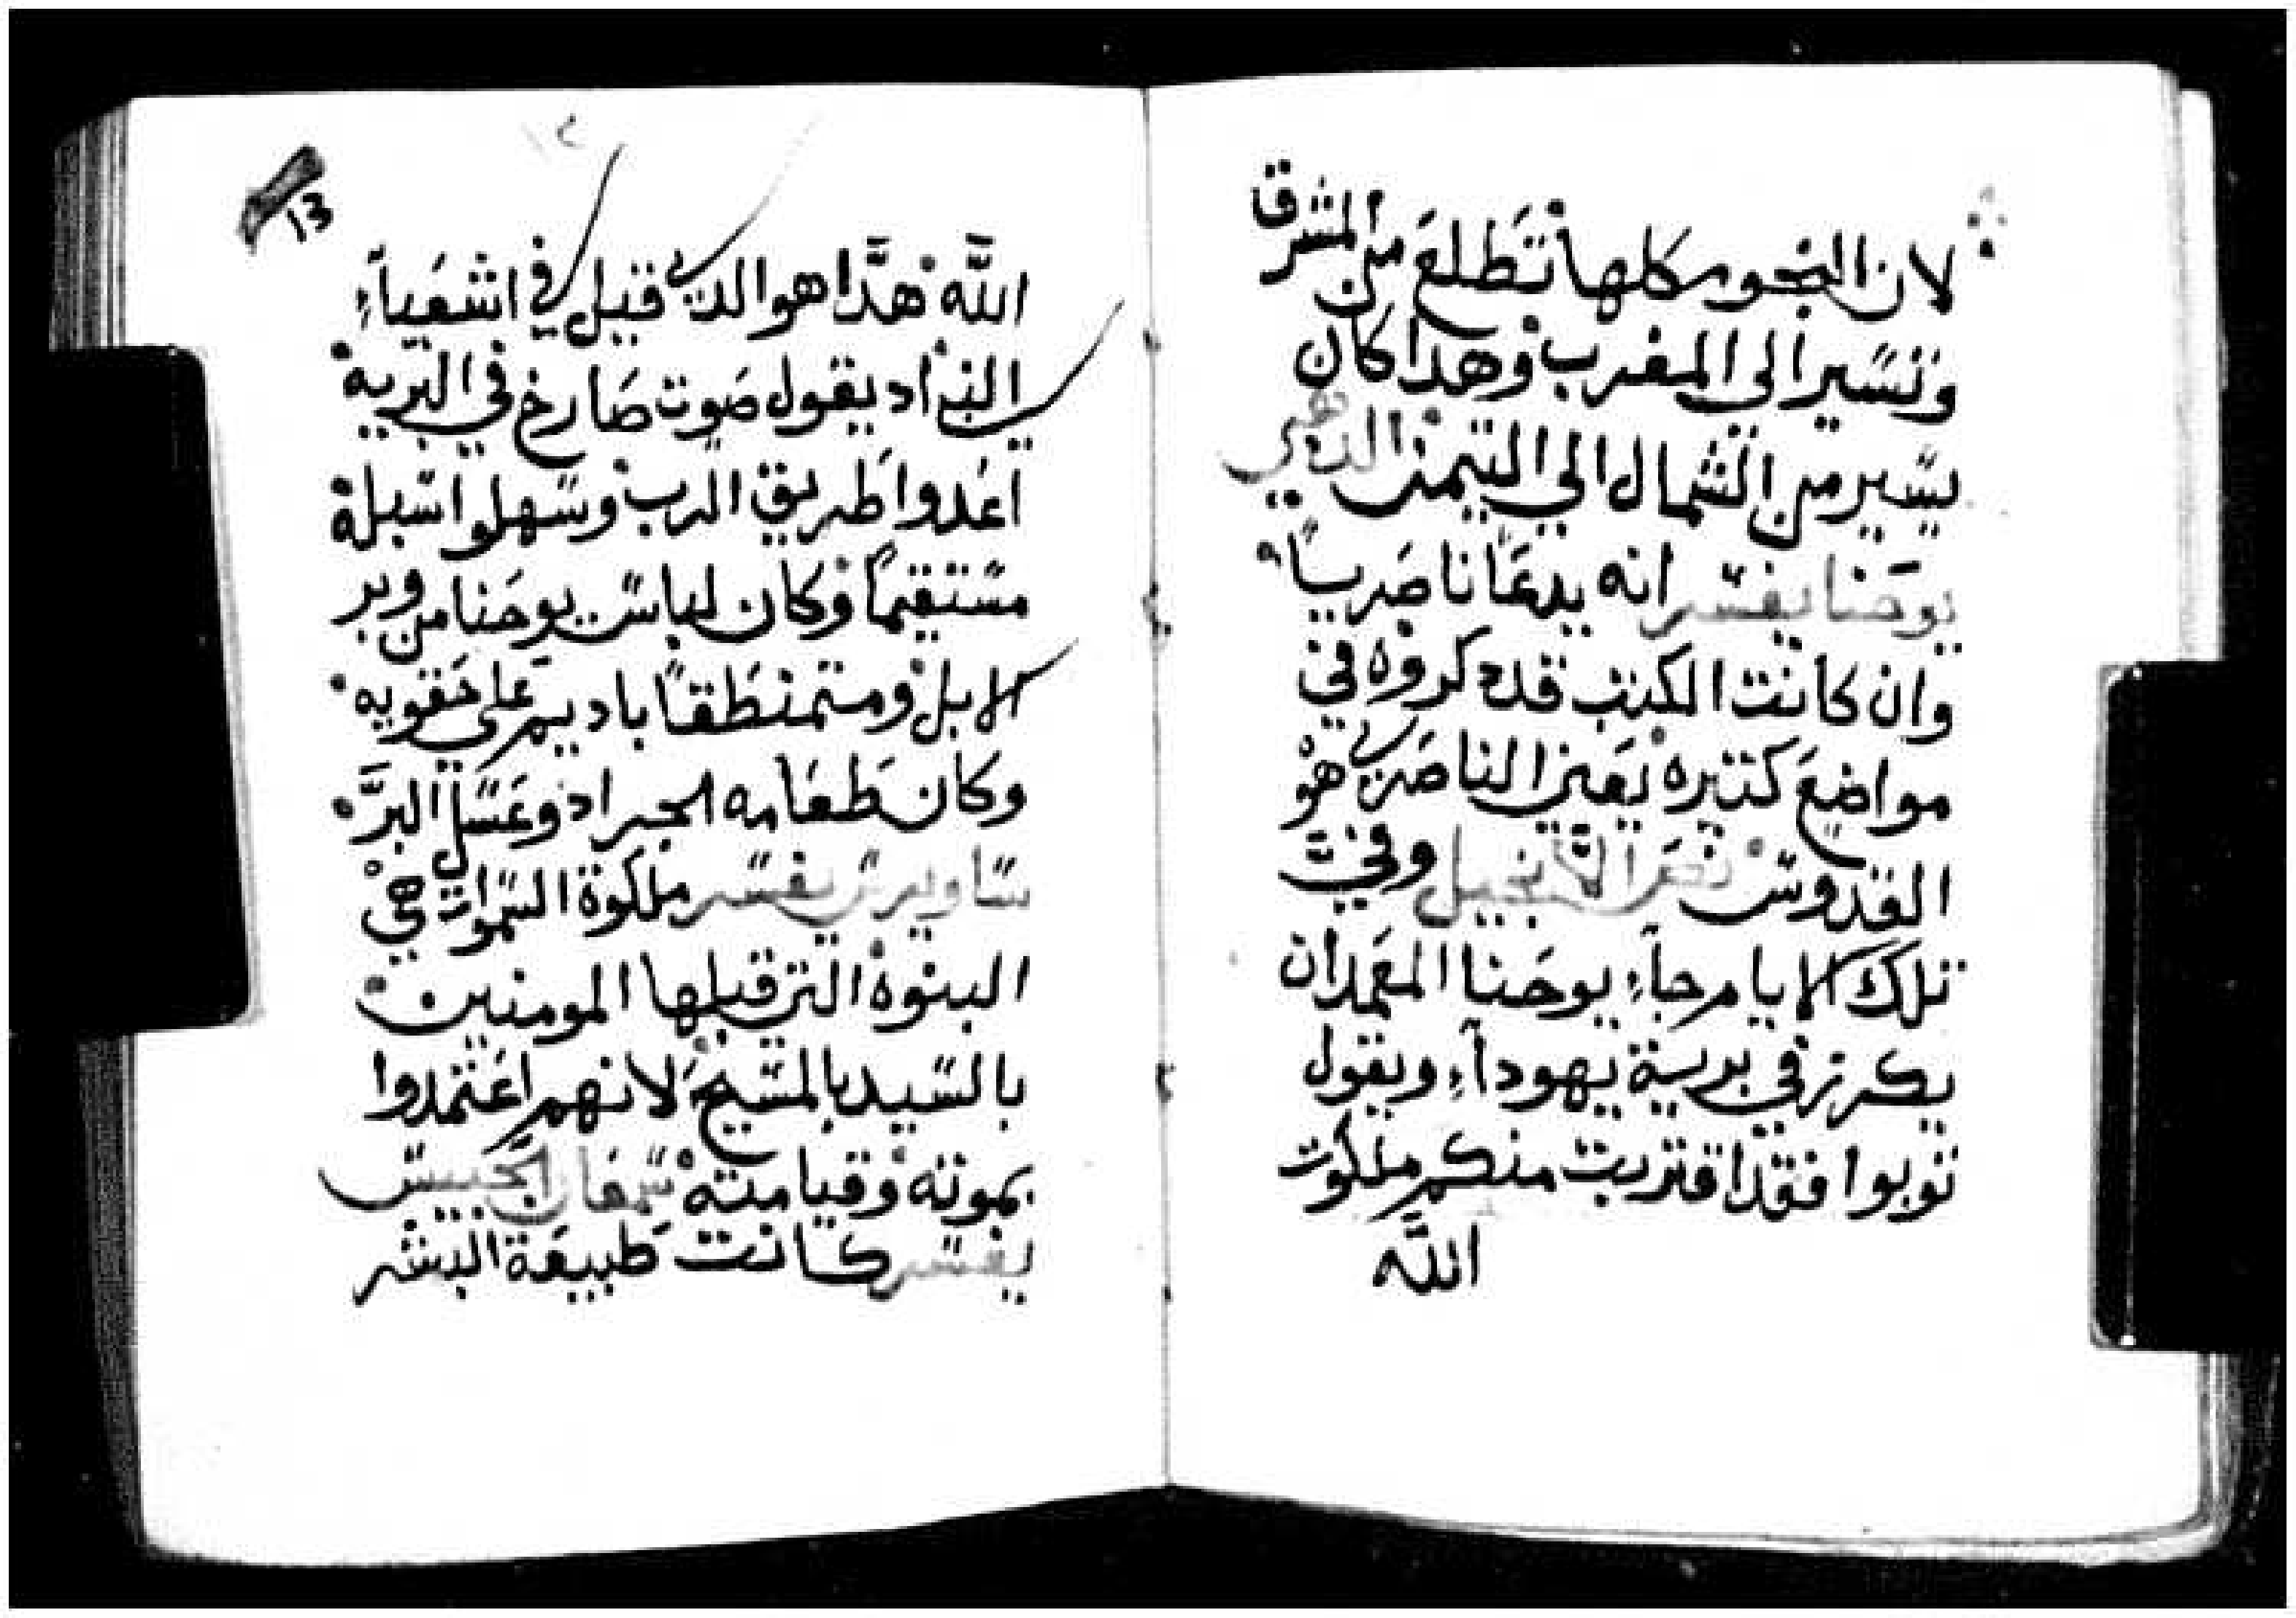 لان النجوم كلها تطلع من المشرق
وتسير الي المغرب وهدا كان
يسير من الشمال الي التيمن
يوحنا يفسر انه يدعا ناصريا
وان كانت الكتب قد دكروه في
مواضع كتيره يعني الناصري هو
القدوس نص الانجيل وفي
تلك الايام جاء يوحنا المعمدان
يكرز في برية يهودا ويقول
توبوا فقد اقتربت منكم ملكوت
الله
13
الله هدا هو الدي قيل في اشعياء
النبي اد يقول صوت صارخ في البريه
اعدوا طريق الرب وسهلوا سبله
مستقيما وكان لباس يوحنا من وبر
الابل ومتمنطقا باديم علي حقويه
وكان طعامه الجراد وعسل البر
ساويرس يفسر ملكوة السموات هي
البنوه التي قبلها المومنين
بالسيد بالمسيح لانهم اعتمدوا
بموته وقيامته سمعان الحبيس
يفسر كانت طبيعة البشر